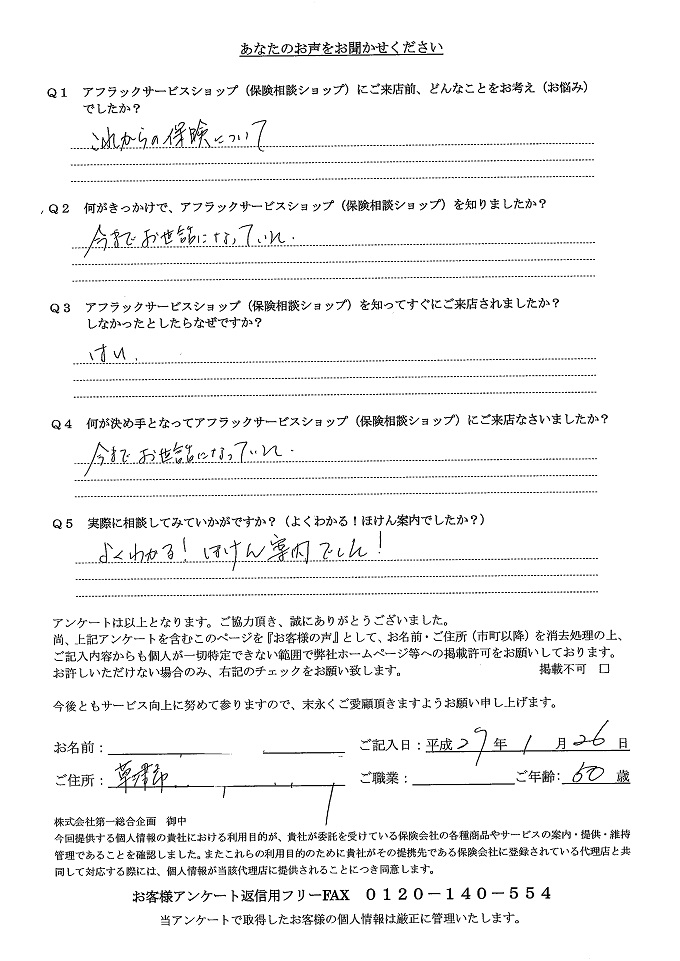 あなたのお声をお聞かせください
Q1 アフラックサービスショップ（保険相談ショップ）にご来店前、どんなことをお考え（お悩み）
でしたか？
これからの保険について
Q2 何がきっかけで、アフラックサービスショップ（保険相談ショップ）を知りましたか？
今までお世話になっていた.
Q3 アフラックサービスショップ（保険相談ショップ）を知ってすぐにご来店されましたか？
しなかったとしたらなぜですか？
はい.
Q4 何が決め手となってアフラックサービスショップ（保険相談ショップ）にご来店なさいましたか？
今までお世話になっていた.
Q5 実際に相談してみていかがですか？（よくわかる！ほけん案内でしたか？）
よくわかる！ほけん案内でした！
アンケートは以上となります。ご協力頂き、誠にありがとうございました。
尚、上記アンケートを含むこのページを『お客様の声』として、お名前・ご住所（市町以降）を消去処理の上、
ご記入内容からも個人が一切特定できない範囲で弊社ホームページ等への掲載許可をお願いしております。
お許しいただけない場合のみ、右記のチェックをお願い致します。 掲載不可 □
今後ともサービス向上に努めて参りますので、末永くご愛顧頂きますようお願い申し上げます。
お名前： ご記入日：平成 27 年 1 月 26 日
ご住所： 草津市 ご職業： ご年齢： 60 歳
株式会社第一総合企画 御中
今回提供する個人情報の貴社における利用目的が、貴社が委託を受けている保険会社の各種商品やサービスの案内・提供・維持
管理であることを確認しました。またこれらの利用目的のために貴社がその提携先である保険会社に登録されている代理店と共
同して対応する際には、個人情報が当該代理店に提供されることにつき同意します。
お客様アンケート返信用フリーFAX 0120－140－554
当アンケートで取得したお客様の個人情報は厳正に管理いたします。